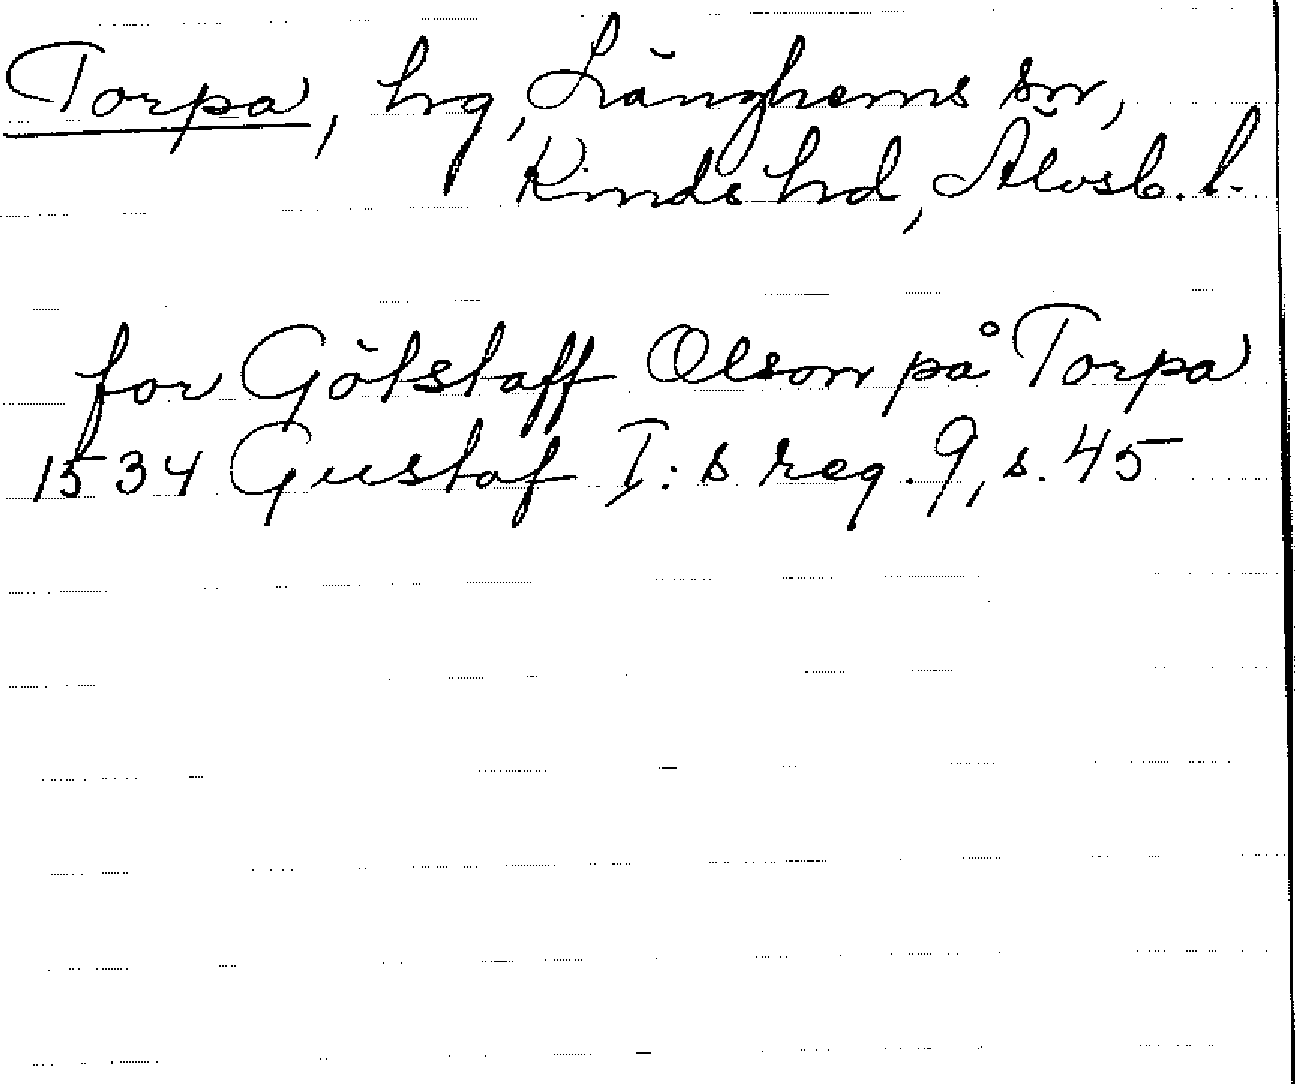 Torpa, hrg, Länghems sn,
Kinds hd, Älvsb. l.
for Götstaff Olson på Torpa
1534 Gustaf I:s reg. 9, s. 45